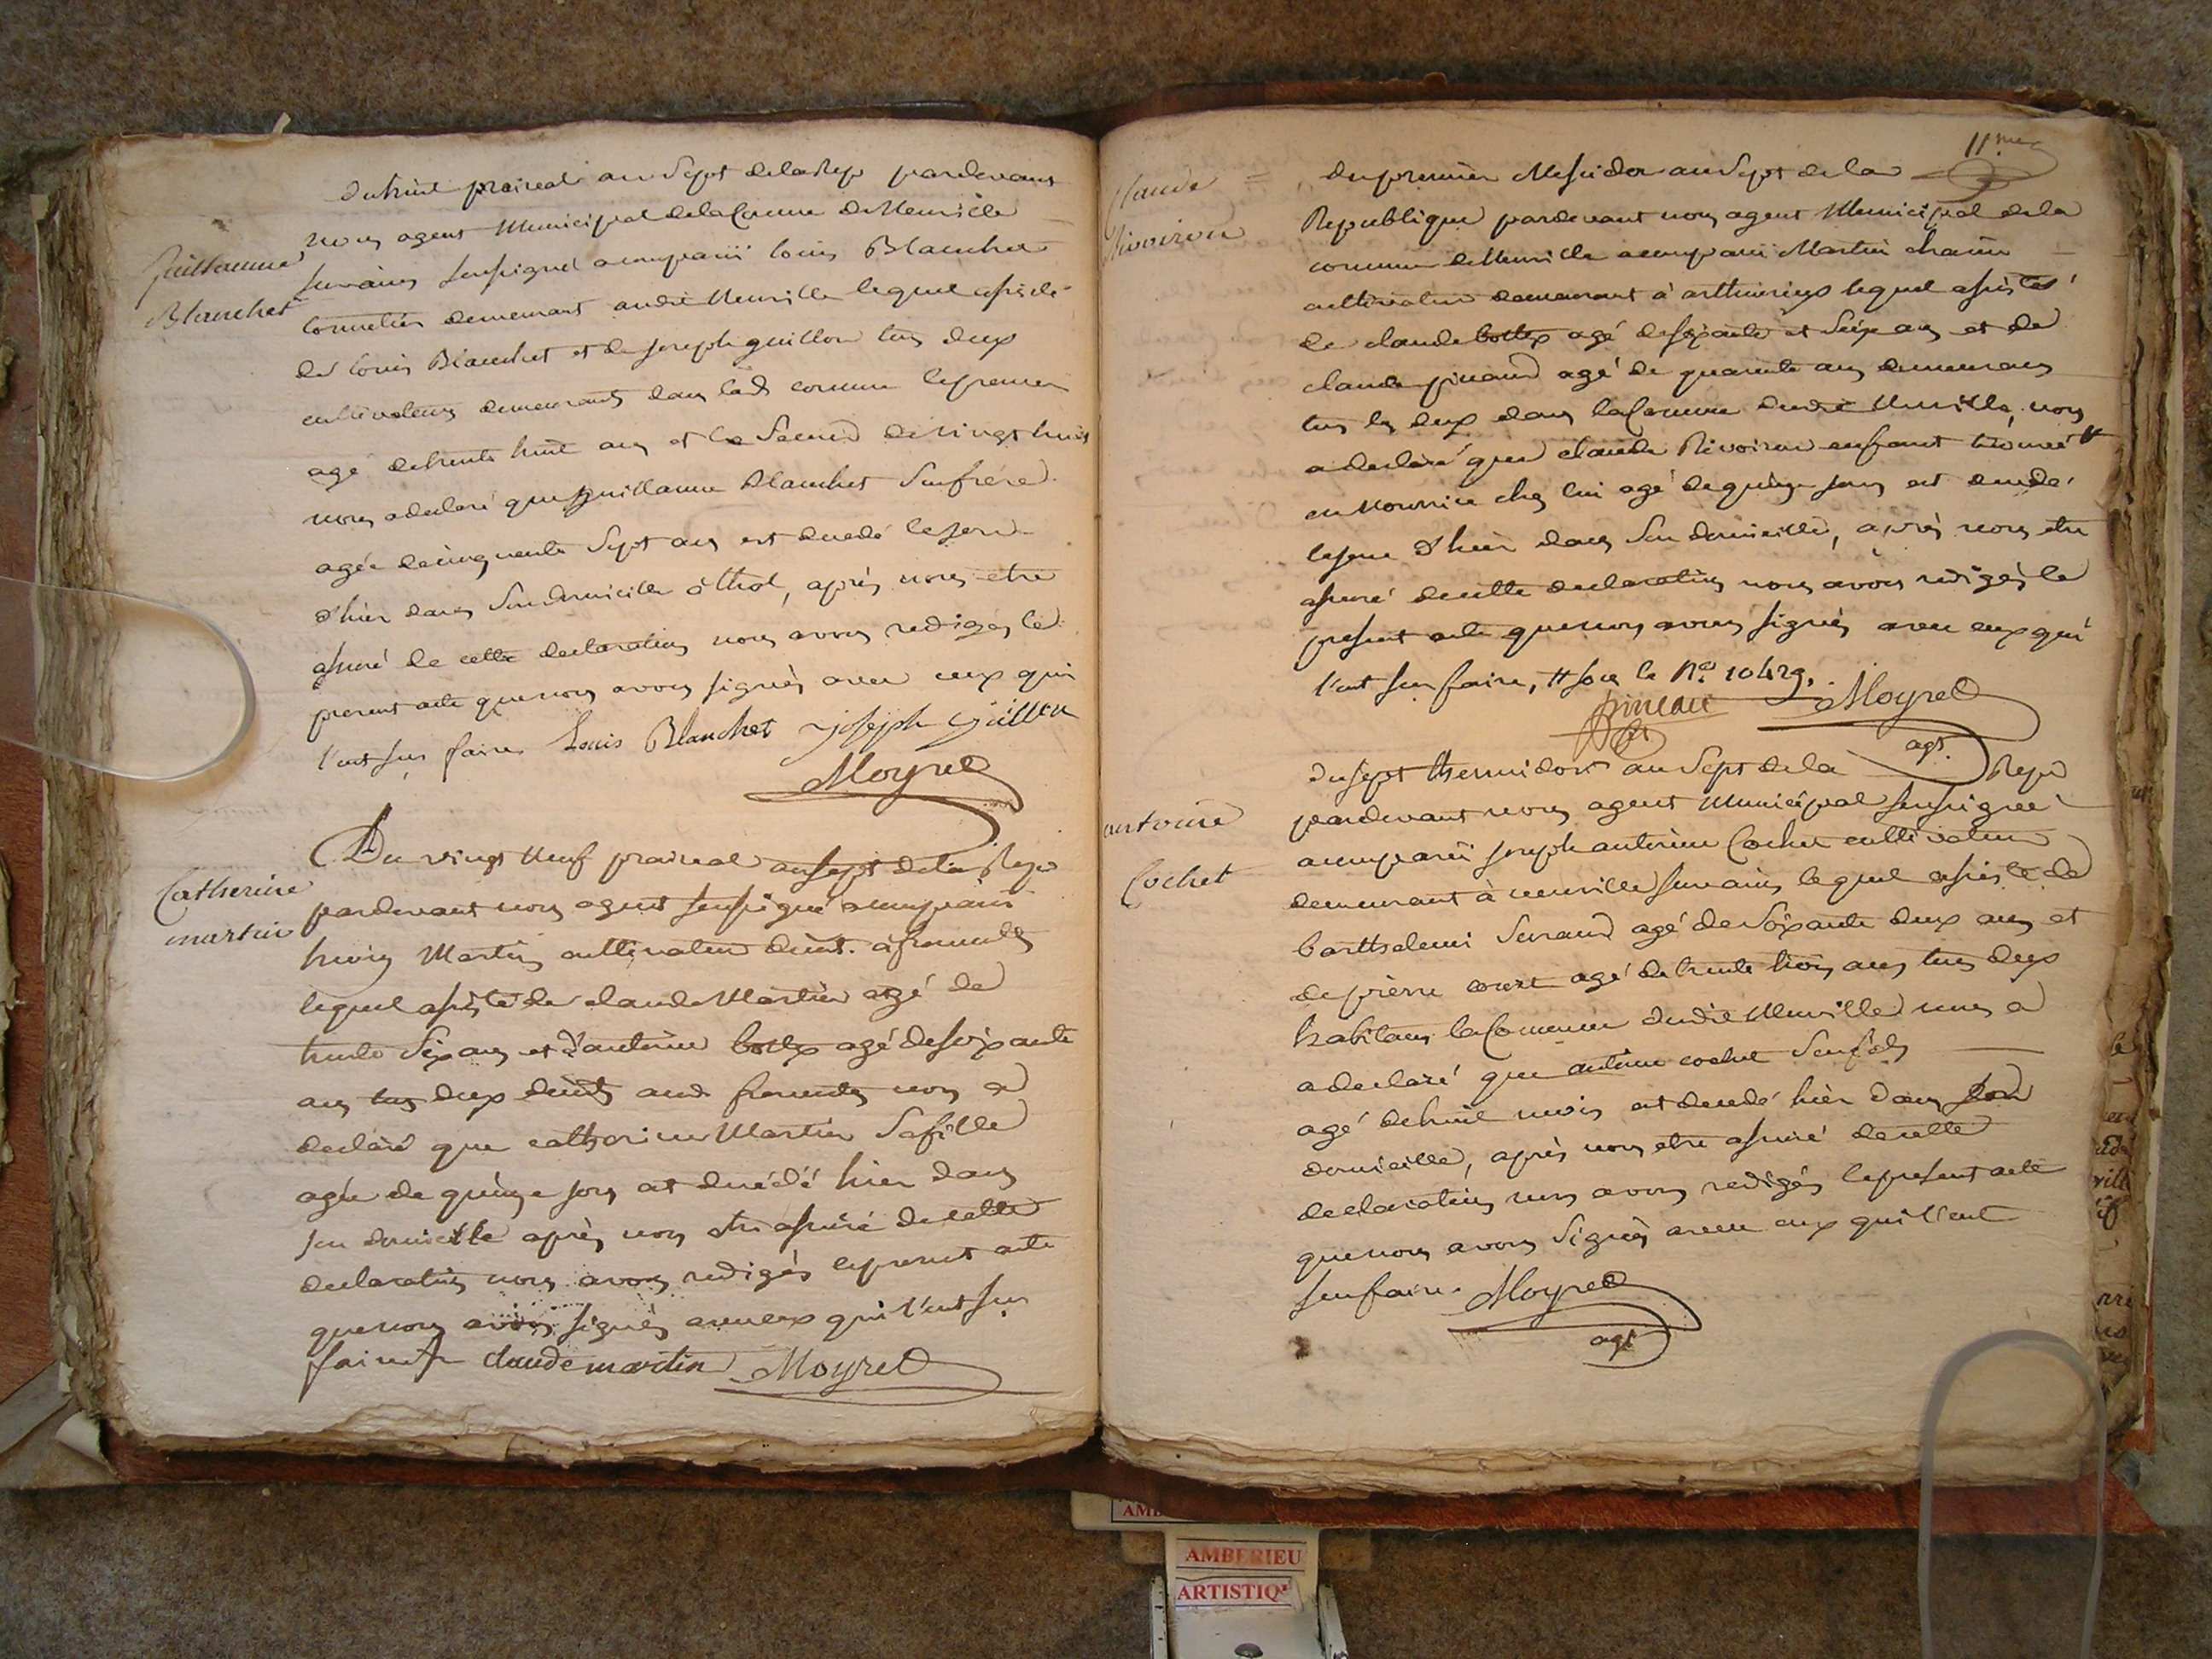 Guillaume
Blanchet
du huit praireal an Sept dela Rep pardevant
nous agent Municipal dela Comune de Neuville
sur ains sousigné a comparü louis Blanchet
demeurant audit Neuville lequel assisté
de louis Blanchet et de joseph guillon tous deux
cultivateurs demeurants dans lad comune le premier
agé de trente huit ans et le Second de vingt huit
nous a declaré que guillaume Blanchet Son frère
agée de cinquente Sept ans est decedé le jour
d'hier dans Son domicille à thol, après nous etre
assuré de cette declaration nous avons redigés le
present acte que nous avons signés avec ceux qui
l'ont su faire Louis Blanchet joseph guillon
Moyret
Catherine
martin
Du vingt Neuf praireal an sept dela Rep
pardevant nous agent sousigné a comparü
Martin cultivateur demt. à fromente
lequel assisté de claude Martin agé de
trente Six ans et d'antoine bottex agé de soixante
ans tous deux demts aud fromente nous a
declaré que catherine Martin Sa fille
agée de quinze jours est decédé hier dans
son domicille après nous etre assuré de cette
declaration nous avons redigés le present acte
que nous avons signés avec eux qui l'ont su
faire claude martin Moyret
11me
Claude
Rivoiron
du premier Messidor an Sept de la
Republique pardevant nous agent Municipal dela
comune de Neuville a comparü Martin
cultivateur demeurant à lequel assisté
de claude bottex agé de soixante et Seize ans et de
claude pinaud agé de quarente ans demeurans
tous les deux dans la Comune dudit Neuville, nous
a declaré que claude Rivoiron enfant trouvé #
en Nourrice chez lui agé de quinze jours est decedé
le jour d'hier dans Son domicille, après nous etre
assuré de cette declaration nous avons redigés le
present acte que nous avons signés avec eux qui
l'ont su faire, # sous le No. 10429.
Moyret
agt.
antoine
Cochet
du sept thermidor an Sept de la Repu
pardevant nous agent Municipal sousigné
a comparü joseph antoine Cochet cultivateur
demeurant à neuville sur ains lequel assisté de
barthelemi Savand agé de Soixante deux ans et
de pierre agé de trente trois ans tous deux
habitans la Comune dudit Neuville nous a
a declaré que antoine cochet Son fils
agé de huit mois est decedé hier dans Son
domicille, après nous etre assuré de cette
declaration nous avons redigés le present acte
que nous avons Signés avec eux qui l'ont
su faire. Moyret
agt
AMBERIEU
ARTISTIQ